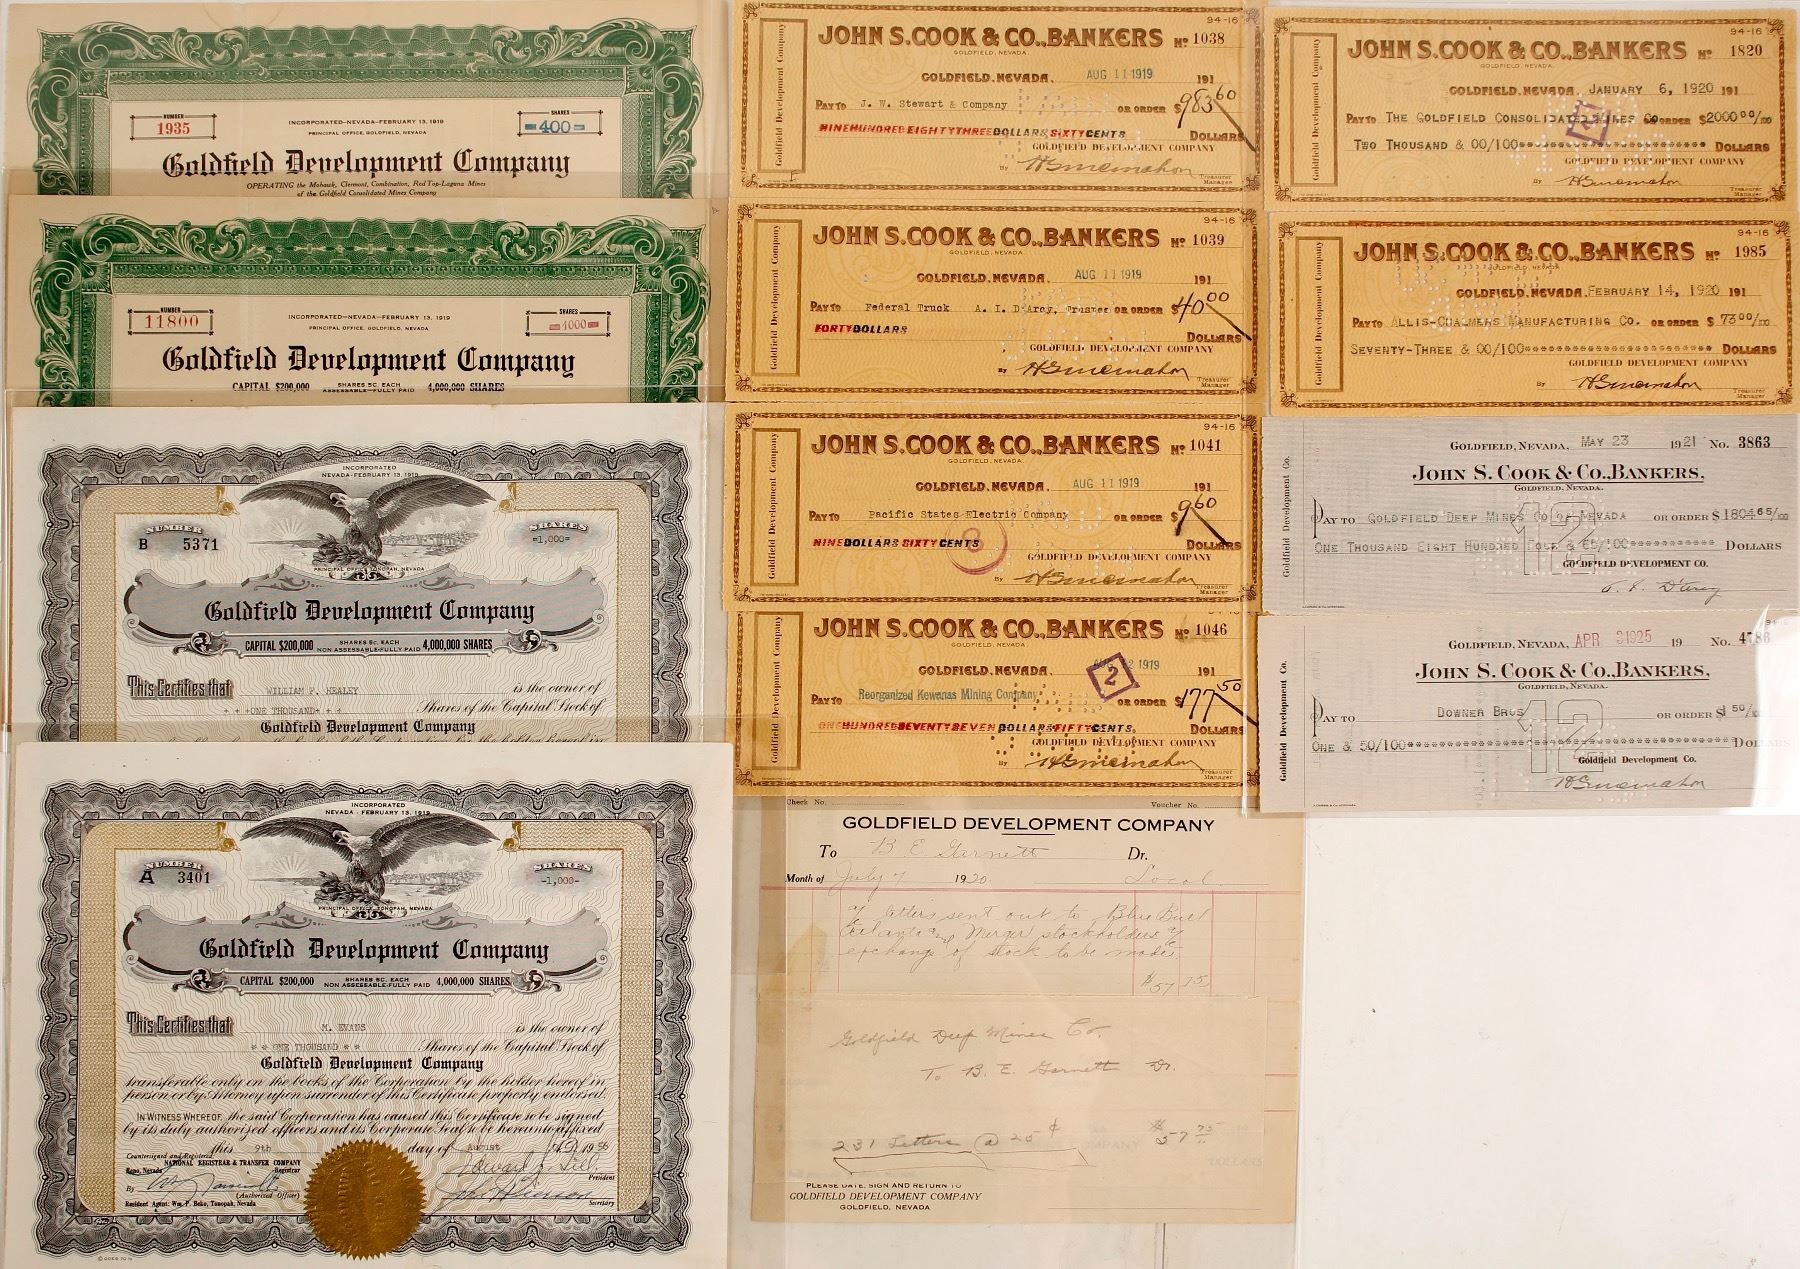 NUMBER
1935
INCORPORATED-NEVADA-FEBRUARY 13, 1919
PRINCIPAL OFFICE, GOLDFIELD, NEVADA
SHARES
400
Goldfield Development Company
OPERATING the Mohawk, Clermont, Combination, Red Top-Laguna Mines
of the Goldfield Consolidated Mines Company
NUMBER
11800
INCORPORATED-NEVADA-FEBRUARY 13, 1919
PRINCIPAL OFFICE, GOLDFIELD, NEVADA
SHARES
Goldfield Development Company
CAPITAL $200,000 SHARES 5C. EACH ASSESSABLE-FULLY PAID 4,000,000 SHARES
INCORPORATED
NEVADA-FEBRUARY 13, 1919
NUMBER
B 5371
SHARES
-1,000-
PRINCIPAL OFFICE, TONOPAH, NEVADA
Goldfield Development Company
CAPITAL $200,000 SHARES 5C. EACH NON ASSESSABLE-FULLY PAID 4,000,000 SHARES
This Certifies that WILLIAM F. HEALEY is the owner of
+ + +ONE THOUSAND+ + + Shares of the Capital Stock of
Goldfield Development Company
INCORPORATED
NEVADA - FEBRUARY 13, 1919
NUMBER
A 3401
SHARES
-1,000-
PRINCIPAL OFFICE, TONOPAH, NEVADA
Goldfield Development Company
CAPITAL $200,000 SHARES 5C. EACH NON ASSESSABLE-FULLY PAID 4,000,000 SHARES
This Certifies that M. EVANS is the owner of
* * ONE THOUSAND * * Shares of the Capital Stock of
Goldfield Development Company
transferable only on the books of the Corporation by the holder hereof in
person or by Attorney upon surrender of this Certificate properly endorsed.
IN WITNESS WHEREOF, the said Corporation has caused this Certificate to be signed
by its duly authorized officers and its Corporate Seal to be hereunto affixed
this 9th day of August A.D. 1956
Countersigned and Registered:
NATIONAL REGISTRAR & TRANSFER COMPANY
Reno, Nevada Registrar
President
By
(Authorized Officer)
Resident Agent: Wm. P. Beko, Tonopah, Nevada
Secretary
94-16
JOHN S. COOK & CO., BANKERS No 1038
GOLDFIELD, NEVADA
GOLDFIELD, NEVADA, AUG 11 1919 191
PAY TO J. W. Stewart & Company OR ORDER $983 60
NINE HUNDRED EIGHTY THREE DOLLARS SIXTY CENTS DOLLARS
GOLDFIELD DEVELOPMENT COMPANY
By
Treasurer
Manager
Goldfield Development Company
94-16
JOHN S. COOK & CO., BANKERS No 1039
GOLDFIELD, NEVADA
GOLDFIELD, NEVADA, AUG 11 1919 191
PAY TO Federal Truck A. I. D'Arcy, Trustee OR ORDER $40 00
FORTY DOLLARS
DOLLARS
GOLDFIELD DEVELOPMENT COMPANY
By
Treasurer
Manager
Goldfield Development Company
94-16
JOHN S. COOK & CO., BANKERS No 1041
GOLDFIELD, NEVADA
GOLDFIELD, NEVADA, AUG 11 1919 191
PAY TO Pacific States Electric Company OR ORDER $9 60
NINE DOLLARS SIXTY CENTS DOLLARS
GOLDFIELD DEVELOPMENT COMPANY
By
Treasurer
Manager
Goldfield Development Company
JOHN S. COOK & CO., BANKERS No 1046
GOLDFIELD, NEVADA
GOLDFIELD, NEVADA, 2 1919 191
2
PAY TO Reorganized Kewanas Mining Company OR ORDER $177 50
ONE HUNDRED SEVENTY SEVEN DOLLARS FIFTY CENTS DOLLARS
GOLDFIELD DEVELOPMENT COMPANY
By
Treasurer
Manager
Goldfield Development Company
94-16
JOHN S. COOK & CO., BANKERS No 1820
GOLDFIELD, NEVADA
GOLDFIELD, NEVADA, JANUARY 6, 1920 191
PAY TO THE GOLDFIELD CONSOLIDATED MINES CO OR ORDER $2000 00/100
TWO THOUSAND & 00/100 DOLLARS
GOLDFIELD DEVELOPMENT COMPANY
By
Treasurer
Manager
Goldfield Development Company
94-16
JOHN S. COOK & CO., BANKERS No 1985
GOLDFIELD, NEVADA
GOLDFIELD, NEVADA, FEBRUARY 14, 1920 191
PAY TO ALLIS-CHALMERS MANUFACTURING CO. OR ORDER $73 00/100
SEVENTY-THREE & 00/100 DOLLARS
GOLDFIELD DEVELOPMENT COMPANY
By
Treasurer
Manager
Goldfield Development Company
GOLDFIELD, NEVADA, MAY 23 1921 No. 3863
JOHN S. COOK & CO., BANKERS,
GOLDFIELD, NEVADA.
PAY TO GOLDFIELD DEEP MINES CO OF NEVADA OR ORDER $1804 65/100
ONE THOUSAND EIGHT HUNDRED FOUR & 65/100 DOLLARS
12
GOLDFIELD DEVELOPMENT CO.
Goldfield Development Co.
GOLDFIELD, NEVADA, APR 3 1925 19 No. 4786
JOHN S. COOK & CO., BANKERS,
GOLDFIELD, NEVADA.
PAY TO DOWNER BROS OR ORDER $1 50/
ONE & 50/100 DOLLARS
12
Goldfield Development Co.
Goldfield Development Co.
Check No. Voucher No.
GOLDFIELD DEVELOPMENT COMPANY
To B E Garnett Dr.
Month of July 7 1920 Local
letters sent out to Blue Bull
Merger stockholders
exchange of stock to be made.
$57 75
Goldfield Deep Mines Co.
To B. E. Garnett Dr.
231 Letters @ 25 ¢ $57 75
PLEASE DATE, SIGN AND RETURN TO
GOLDFIELD DEVELOPMENT COMPANY
GOLDFIELD, NEVADA